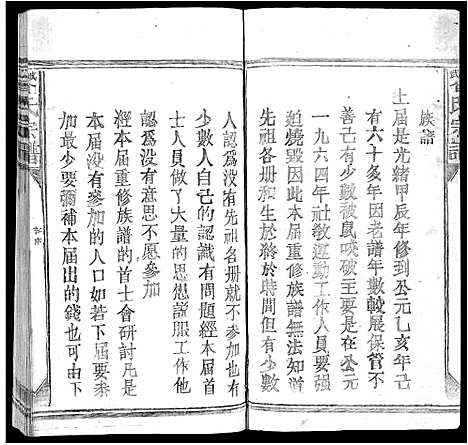 族譜
上屆是光緒甲辰年修到公元乙亥年己
有六十多年因老譜年數較長保管不
善己有少數被鼠咬破主要是在公元
一九六四年社教運動工作人員要强
迫燒毀因此本屆重修族譜無法知道
先祖各册和生於終於時間但有少數
人認爲没有先祖名册就不參加也有
少數人自己的認識有問題經本屆首
士人員做了大量的思想説服工作他
認爲没有意思不愿參加
經本屆重修族譜的首士會研討凡是
本屆没有參加的人口如若下屆要參
加最少要彌補本屆出的錢也可由下